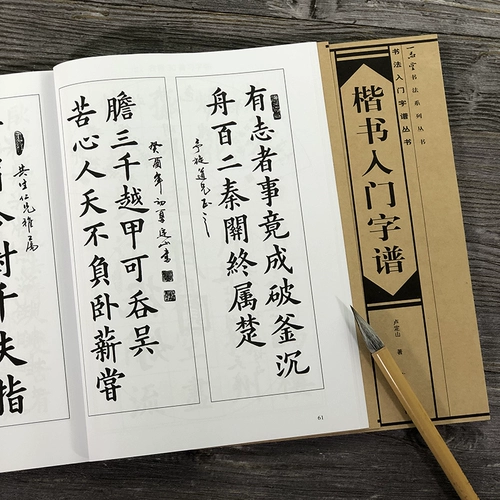 书法系列丛书
书法入门字谱丛书
楷书入门字谱
卢定山 著
有志者事竟成破釜沉
舟百二秦關終属楚
苦心人天不負卧薪嘗
膽三千越甲可吞吴
癸酉年初夏定山書
仁兄雅属
千夫指
61